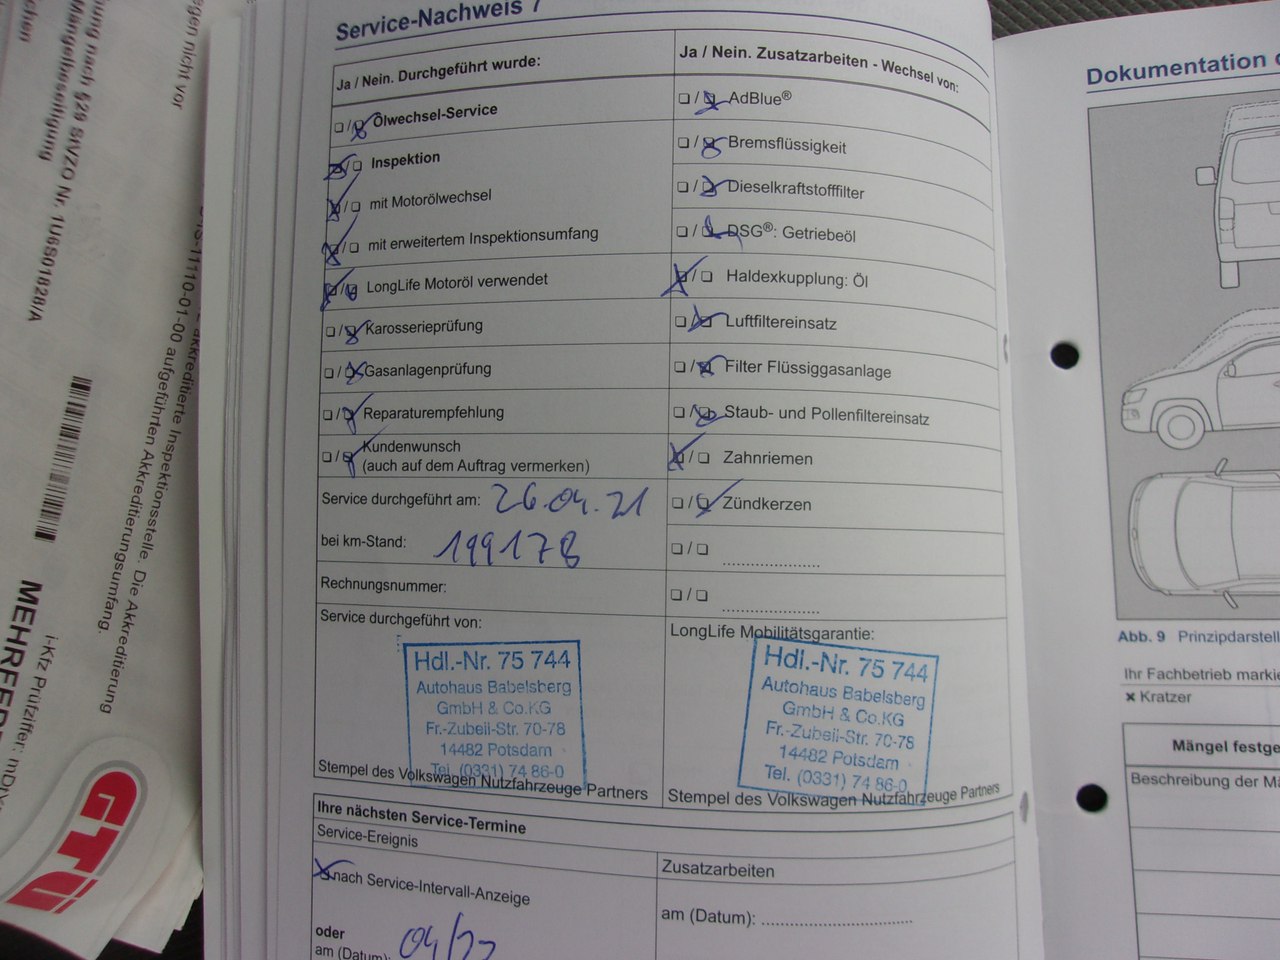 Service-Nachweis 7
Ja / Nein. Durchgeführt wurde:
Ölwechsel-Service
Inspektion
mit Motorölwechsel
mit erweitertem Inspektionsumfang
LongLife Motoröl verwendet
Karosserieprüfung
Gasanlagenprüfung
Reparaturempfehlung
Kundenwunsch
(auch auf dem Auftrag vermerken)
Service durchgeführt am: 26.04.21
bei km-Stand: 199178
Rechnungsnummer:
Service durchgeführt von:
Hdl.-Nr. 75 744
Autohaus Babelsberg
GmbH & Co.KG
Fr.-Zubeil-Str. 70-78
14482 Potsdam
Tel. (0331) 74 86-0
Stempel des Volkswagen Nutzfahrzeuge Partners
Ja / Nein. Zusatzarbeiten - Wechsel von:
AdBlue®
Bremsflüssigkeit
Dieselkraftstofffilter
DSG®: Getriebeöl
Haldexkupplung: Öl
Luftfiltereinsatz
Filter Flüssiggasanlage
Staub- und Pollenfiltereinsatz
Zahnriemen
Zündkerzen
LongLife Mobilitätsgarantie:
Hdl.-Nr. 75 744
Autohaus Babelsberg
GmbH & Co.KG
Fr.-Zubeil-Str. 70-78
14482 Potsdam
Tel. (0331) 74 86-0
Stempel des Volkswagen Nutzfahrzeuge Partners
Ihre nächsten Service-Termine
Service-Ereignis
nach Service-Intervall-Anzeige
oder
am (Datum): 04/22
Zusatzarbeiten
am (Datum):
Dokumentation
Abb. 9 Prinzipdarstell
Ihr Fachbetrieb markie
× Kratzer
Mängel festge
Beschreibung der Mä
gen nicht vor
ung nach §29 StVZO Nr. 1U6S01828/A
Mängelbeseitigung
akkreditierte Inspektionsstelle. Die Akkreditierung
11110-01-00 aufgeführten Akkreditierungsumfang.
i-Kfz Prüfziffer:
GTÜ